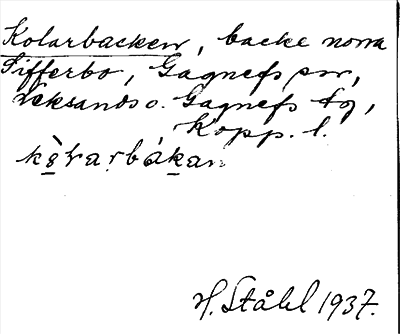 Kolarbacken, backe norra
Sifferbo, Gagnefs sn,
Leksands o. Gagnefs tg,
Kopp. l.
H. Ståhl 1937.